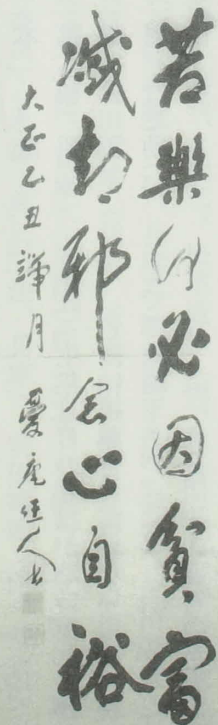 苦樂何必因貧富
滅却邪念心自裕
大正乙丑譁月 愛庵恒人書